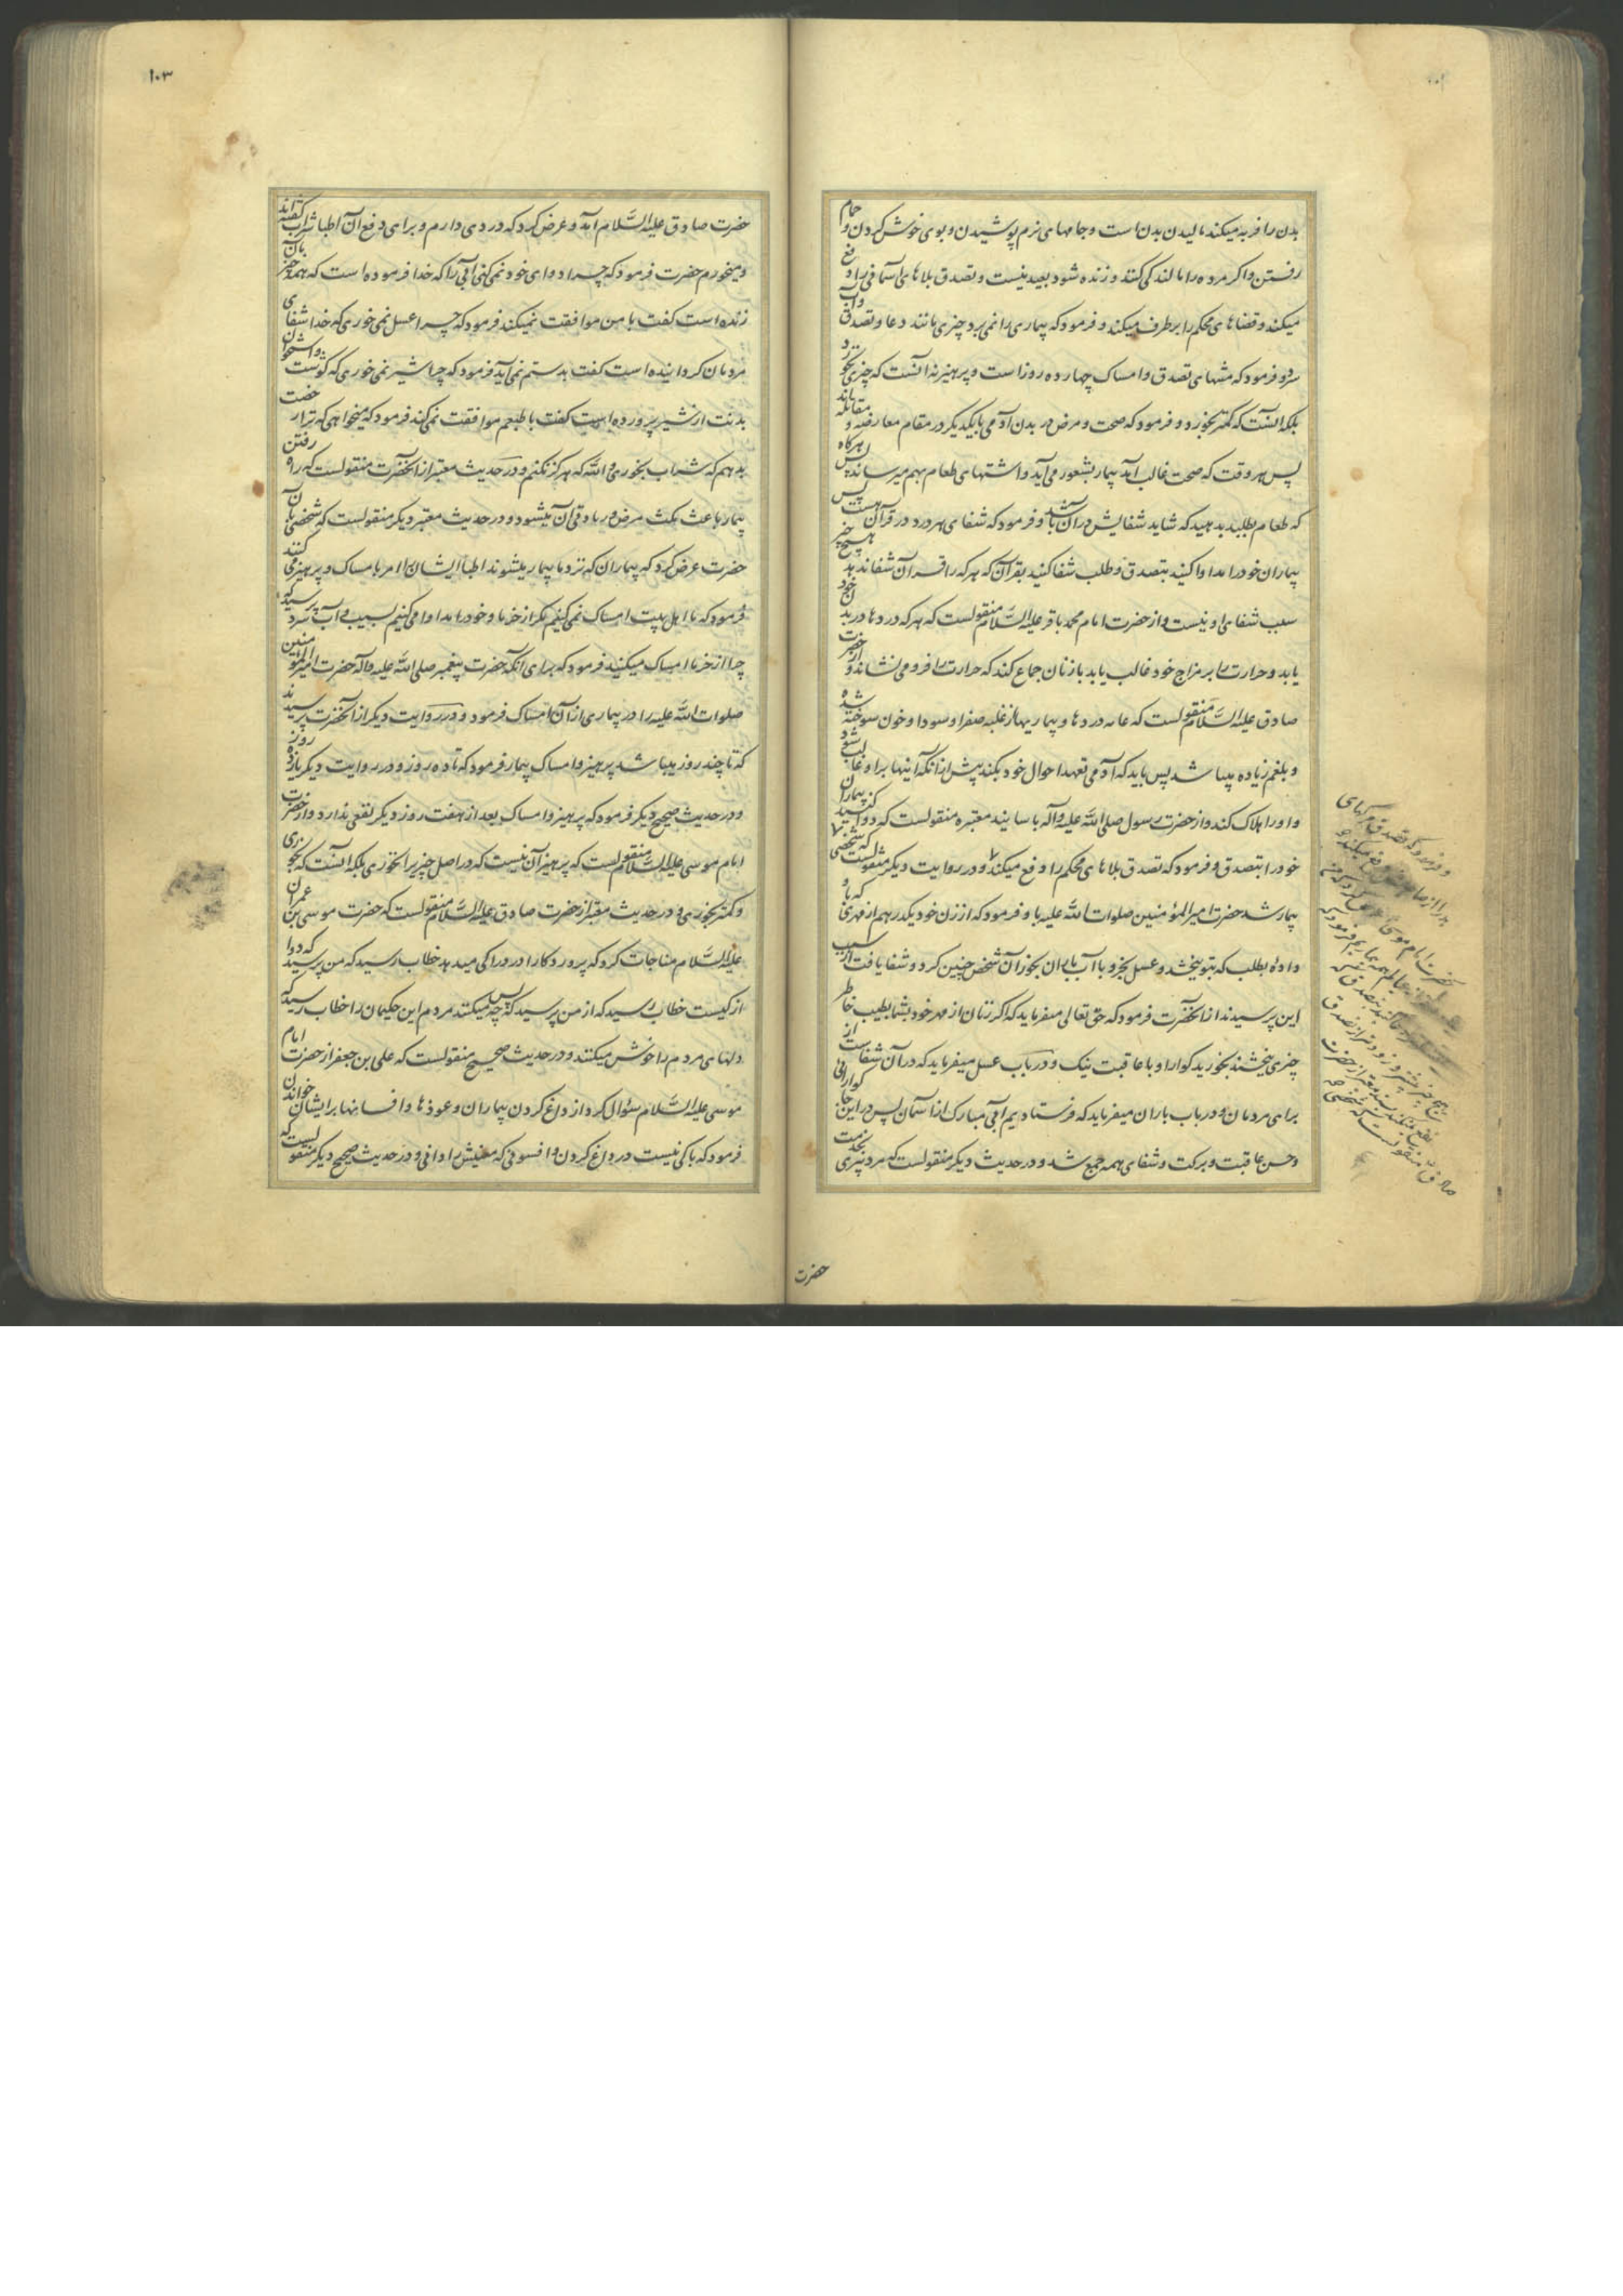 بدن را فربه میکند مالیدن بدن است و جامهای نرم پوشیدن و بوی خوش کردن و حمام
رفتن و اگر مرده را مالند کی کنند و زنده شود بعید نیست و تصدق بلاهای آسمانی را دفع
میکند و قضاهای محکم را برطرف میکند و فرمود که بیماری را نمی برد چیزی مانند دعا و تصدق و آب
سرد و فرمود که منتهای تصدق و امساک چهارده روز است و پرهیز نه آنست که چیزی نخورد
بلکه آنست که کمتر بخورد و فرمود که صحت و مرض در بدن آدمی با یکدیگر در مقام معارضه و مقاتله اند
پس هر وقت که صحت غالب آمد بیمار بشعور می آید و اشتهای طعام بهم میرساند پس هرگاه
که طعام بطلبد بدهید که شاید شفایش در آن باشد و فرمود که شفای هر درد در قرآن هست پس
بیماران خود را مداوا کنید بتصدق و طلب شفا کنید بقرآن که هر که را قرآن شفا ندهد هیچ چیز
سبب شفای او نیست و از حضرت امام محمد باقر علیه السلام منقولست که هر که دردها در بدن خود
یابد و حرارت را بر مزاج خود غالب یابد با زنان جماع کند که حرارت را فرو می نشاند و از حضرت
صادق علیه السلام منقولست که عامه دردها و بیماریها از غلبه صفرا و سودا و خون سوخته شده
و بلغم زیاده میباشد پس باید که آدمی تعهد احوال خود بکند پیش از آنکه اینها بر او غالب شود
و او را هلاک کند و از حضرت رسول صلی الله علیه و آله باسانید معتبره منقولست که دوا کنید بیماران
خود را بتصدق و فرمود که تصدق بلاهای محکم را دفع میکند و در روایت دیگر منقولست که شخصی
بیمار شد حضرت امیرالمؤمنین صلوات الله علیه باو فرمود که از زن خود یکدرهم از مهری که باو
داده بطلب که بتو ببخشد و عسل بخر و با آب باران بخور آن شخص چنین کرد و شفا یافت از سبب
این پرسیدند از آنحضرت فرمود که حق تعالی میفرماید که اگر زنان از مهر خود بشما بطیب خاطر
چیزی ببخشند بخورید گوارا و با عاقبت نیک و در باب عسل میفرماید که در آن شفاست از
برای مردمان و در باب باران میفرماید که فرستادیم آبی مبارک از آسمان پس در اینجا گوارائی
و حسن عاقبت و برکت و شفای همه جمع شد و در حدیث دیگر منقولست که مرد پیری بخدمت
حضرت
۱۰۳
حضرت صادق علیه السلام آمد و عرض کرد که دردی دارم و برای دفع آن اطبا شراب گفته اند
و میخورم حضرت فرمود که چرا دوای خود نمیکنی آبی را که خدا فرموده است که همه چیز بآن
زنده است گفت با من موافقت نمیکند فرمود که چرا عسل نمی خوری که خدا شفای
مردمان گردانیده است گفت بدستم نمی آید فرمود که چرا شیر نمی خوری که گوشت و استخوان
بدنت از شیر پرورده است گفت با طبعم موافقت نمی کند فرمود که میخواهی که ترا رخصت
بدهم که شراب بخوری و الله که هرگز نکنم و در حدیث معتبر از آنحضرت منقولست که راه رفتن
بیمار باعث مکث مرض و زیادتی آن میشود و در حدیث معتبر دیگر منقولست که شخصی بآن
حضرت عرض کرد که بیماران که نزد ما بیمار میشوند اطبا ایشان را امر بامساک و پرهیز می کنند
فرمود که ما اهل بیت امساک نمی کنیم مگر از خرما و خود را مداوا می کنیم بسیب و آب سرد پرسید که
چرا از خرما امساک میکنید فرمود که برای آنکه حضرت پیغمبر صلی الله علیه و آله حضرت امیرالمؤمنین
صلوات الله علیه را در بیماری از آن امساک فرمود و در روایت دیگر از آنحضرت پرسیدند
که تا چند روز میباشد پرهیز و امساک بیمار فرمود که تا ده روز و در روایت دیگر یازده روز
و در حدیث صحیح دیگر فرمود که پرهیز و امساک بعد از هفت روز دیگر نفعی ندارد و از حضرت
امام موسی علیه السلام منقولست که پرهیز آن نیست که در اصل چیزیرا نخوری بلکه آنست که بخوری
و کمتر بخوری و در حدیث معتبر از حضرت صادق علیه السلام منقولست که حضرت موسی بن عمران
علیه السلام مناجات کرد که پروردگارا درد را کی میدهد خطاب رسید که من پرسید که دوا
از کیست خطاب رسید که از من پرسید که پس چه میکنند مردم این حکیمان را خطاب رسید که
دلهای مردم را خوش میکنند و در حدیث صحیح منقولست که علی بن جعفر از حضرت امام
موسی علیه السلام سؤال کرد از داغ کردن بیماران و عوذها و افسانها بر ایشان خواندن
فرمود که باکی نیست در داغ کردن و افسونی که معنیش را دانی و در حدیث صحیح دیگر منقولست که